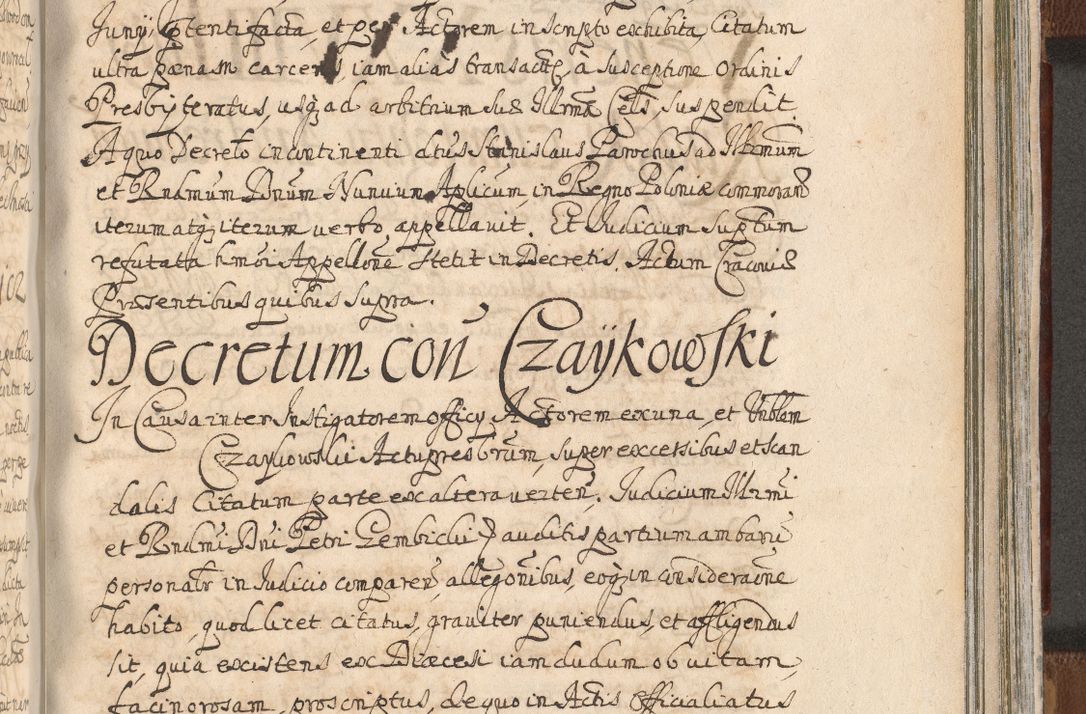 Junÿ, ptentifacta, et per Actorem in scripto exchibita, Citatum
ultra pænam carceris, iam alias transactæ, à susceptione Ordinis
Presbyteratus, usq ad arbitrium suæ Illrmæ Cels, suspendit.
A quo Decreto incontinenti dtus Stanislaus Parochus ad Illrmum
et Rndmum Dnum Nunium Aplicum, in Regno Poloniæ commoran
iterum atq iterum verbo appellavit. Et Judicium suptum
refutatta hmoi Appellone stetit in Decretis. Actum Cracoviæ
Præsentibus quibus supra.
Decretum con Czaÿkowski
In Causa inter Instigatorem officÿ Actorem ex una, et Vnblem
Czaykowski Actu presbrum, super excessibus et scan
dalis Citatum parte ex altera verten. Judicium Illrmi
et Rndmi Dni Petri Gembicki auditis partium ambarum
personalr in Judicio comparen, allegonibus, eoq in consideraone
habito, quod licet citatus, graviter puniendus, et affligendus
sit, quia existens ex Diæcesi iamdudum ob vitam
facinorosam, proscriptus, de quo in Actis Officialiatus
102